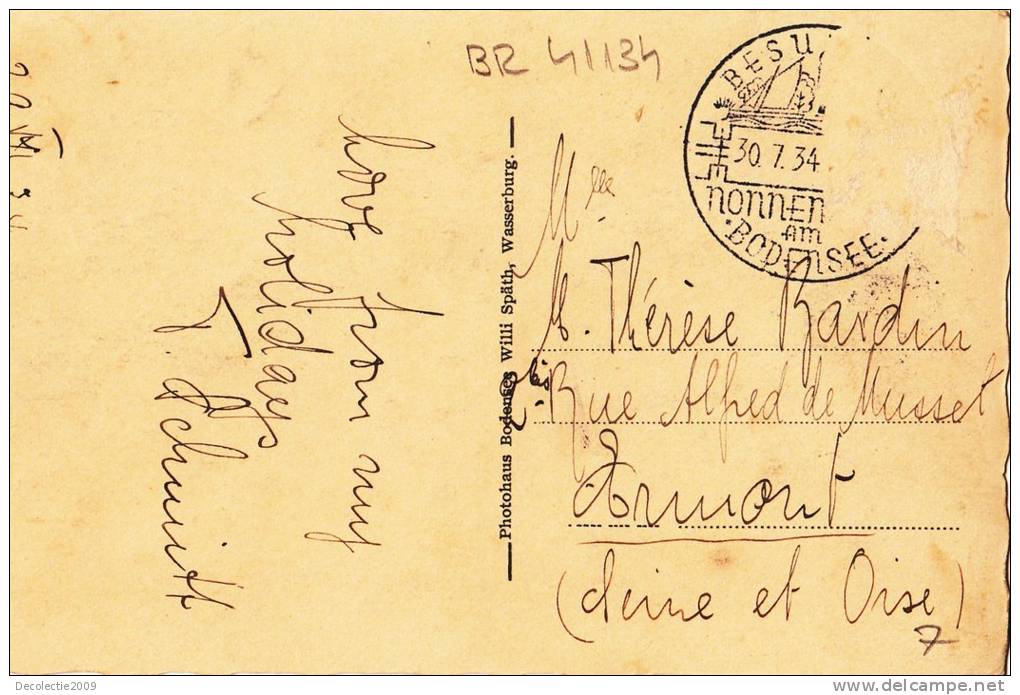 BR 41134
BESU
30.7.34
NONNEN
AM
BODENSEE
Love from my
holidays
J. Schmitt
Photohaus Bodensee Willi Späth, Wasserburg.
Mlle
M. Thérèse Bardin
2 bis Rue Alfred de Musset
Ermont
(Seine et Oise)
7
Decolectie2009
www.delcampe.net